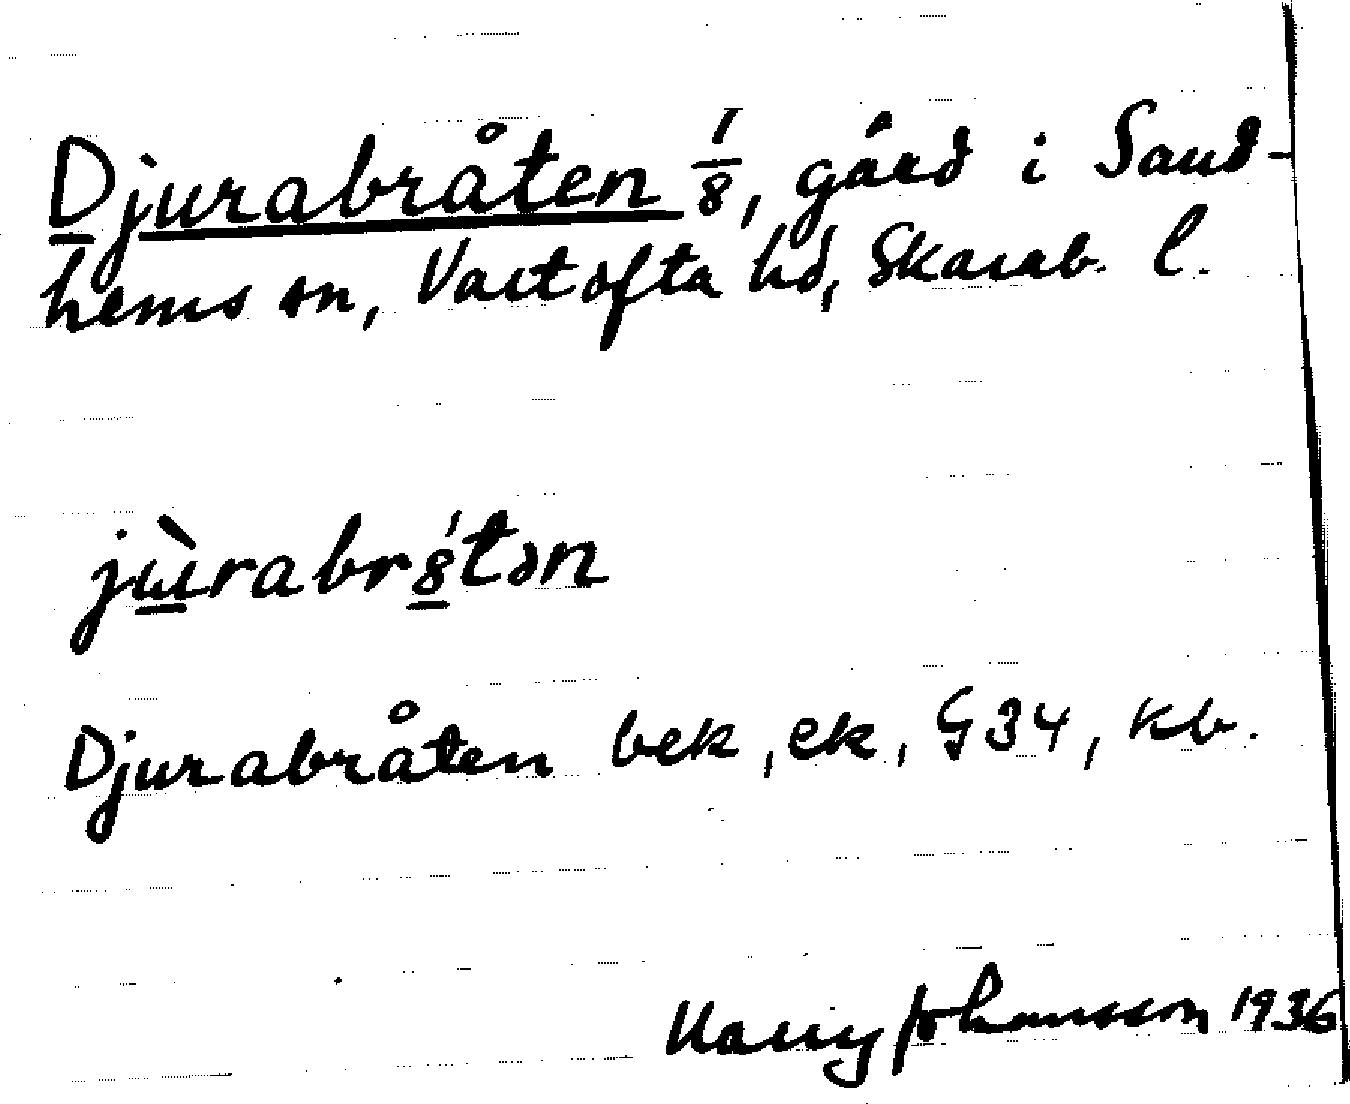 Djurabråten 1/8, gård i Sand-
hems sn, Vartofta hd, Skarab. l.
jùrabr8́tən
Djurabråten bek, ek, G34, kb.
Harry Johansson 1936